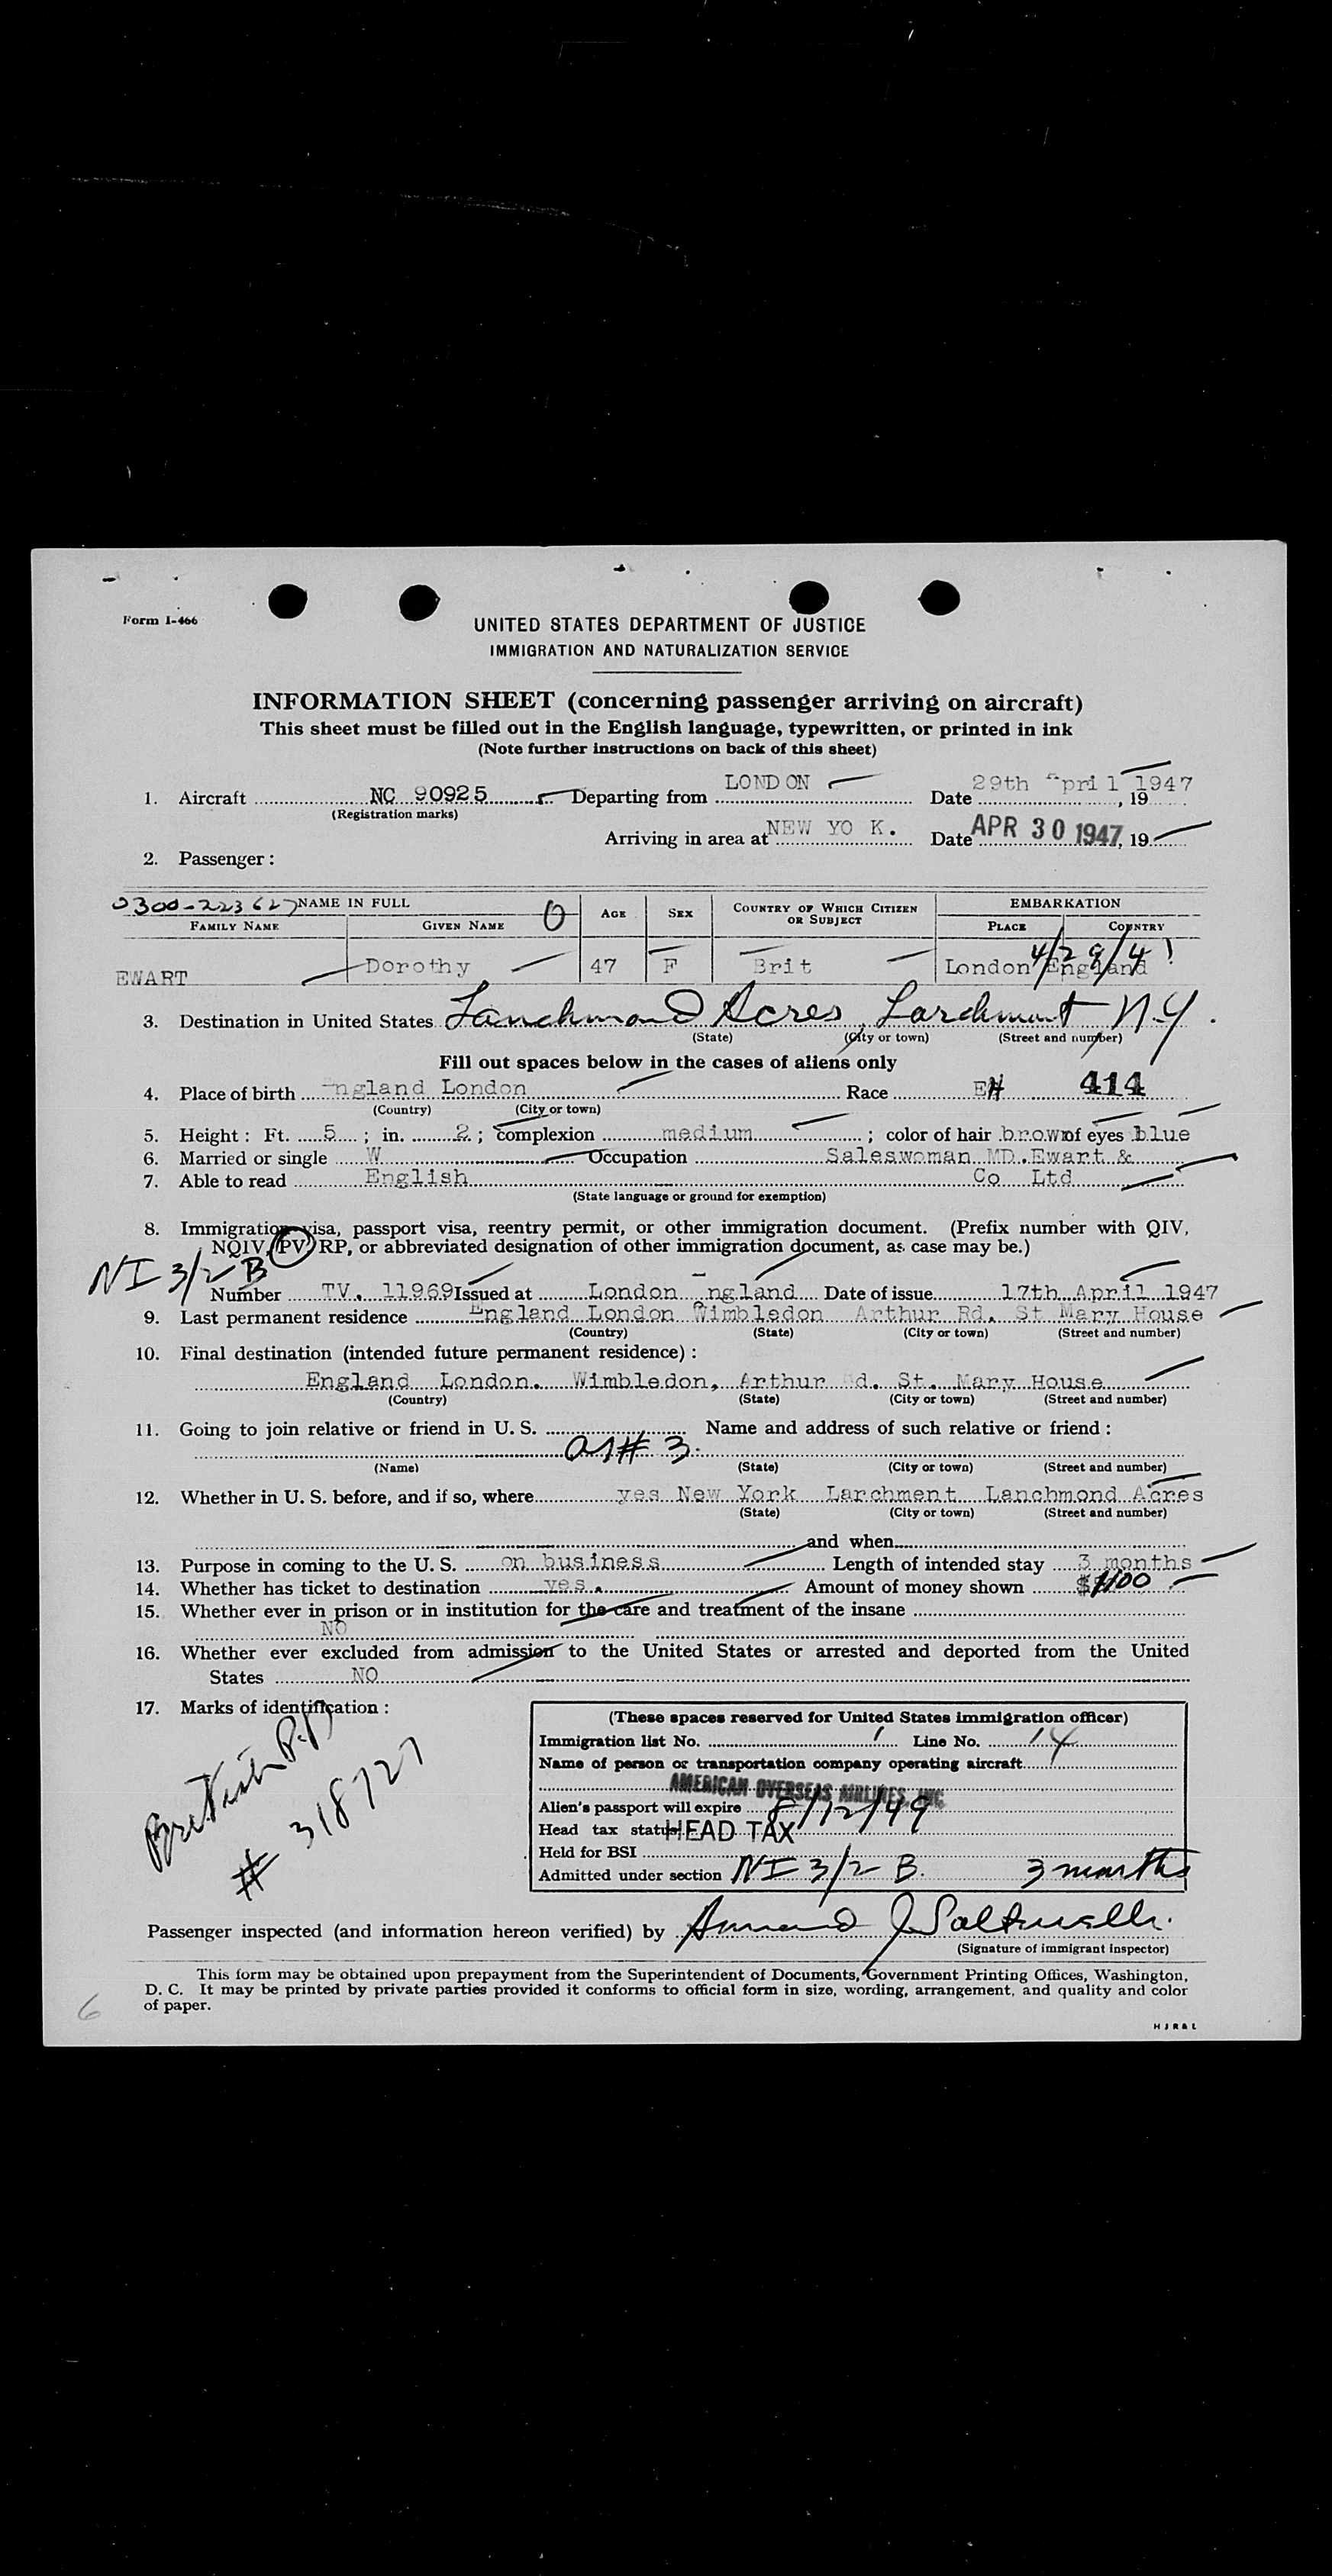 Form I-466
UNITED STATES DEPARTMENT OF JUSTICE
IMMIGRATION AND NATURALIZATION SERVICE
INFORMATION SHEET (concerning passenger arriving on aircraft)
This sheet must be filled out in the English language, typewritten, or printed in ink
(Note further instructions on back of this sheet)
1. Aircraft NC 90925 Departing from LONDON Date 29th pril 1947, 19
(Registration marks)
Arriving in area at NEW YO K. Date APR 30 1947, 19
2. Passenger:
0300-223627 NAME IN FULL 0 AGE SEX COUNTRY OF WHICH CITIZEN OR SUBJECT EMBARKATION
FAMILY NAME GIVEN NAME PLACE COUNTRY
EWART Dorothy 47 F Brit London England
3. Destination in United States Lanchmond Acres, Larchmont N.Y.
(State) (City or town) (Street and number)
Fill out spaces below in the cases of aliens only
4. Place of birth England London Race 414
(Country) (City or town)
5. Height: Ft. 5; in. 2; complexion medium; color of hair brown of eyes blue
6. Married or single W Occupation Saleswoman MD.Ewart &
7. Able to read English Co Ltd
(State language or ground for exemption)
8. Immigration visa, passport visa, reentry permit, or other immigration document. (Prefix number with QIV,
NQIV, PV, RP, or abbreviated designation of other immigration document, as case may be.)
NI 3/2 B
Number TV. 11969 Issued at London ngland Date of issue 17th April 1947
9. Last permanent residence England London Wimbledon Arthur Rd. St Mary House
(Country) (State) (City or town) (Street and number)
10. Final destination (intended future permanent residence):
England London. Wimbledon, Arthur d. St. Mary House
(Country) (State) (City or town) (Street and number)
11. Going to join relative or friend in U. S. Name and address of such relative or friend:
as # 3.
(Name) (State) (City or town) (Street and number)
12. Whether in U. S. before, and if so, where yes New York Larchment Lanchmond Acres
(State) (City or town) (Street and number)
and when
13. Purpose in coming to the U. S. on business Length of intended stay 3 months
14. Whether has ticket to destination yes. Amount of money shown $1100
15. Whether ever in prison or in institution for the care and treatment of the insane
NO
16. Whether ever excluded from admission to the United States or arrested and deported from the United
States NO
17. Marks of identification:
British P.P.
# 318727
(These spaces reserved for United States immigration officer)
Immigration list No. 1 Line No. 14
Name of person or transportation company operating aircraft
AMERICAN OVERSEAS AIRLINES, INC.
Alien's passport will expire 8/12/49
Head tax status HEAD TAX
Held for BSI
Admitted under section NI 3/2 B. 3 months
Passenger inspected (and information hereon verified) by
(Signature of immigrant inspector)
This form may be obtained upon prepayment from the Superintendent of Documents, Government Printing Offices, Washington,
D. C. It may be printed by private parties provided it conforms to official form in size, wording, arrangement, and quality and color
of paper.
6
H J R & L